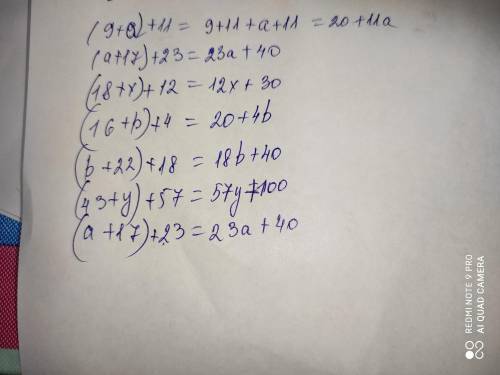 (9+a)+11 = 9+11+a+11 = 20+11a
(a+17)+23=23a+40
(18+x)+12 = 12x+30
(16+b)+4 = 20+4b
(b+22)+18 = 18b+40
(43+y)+57=57y+100
(a+17)+23=23a+40
REDMI NOTE 9 PRO
AI QUAD CAMERA